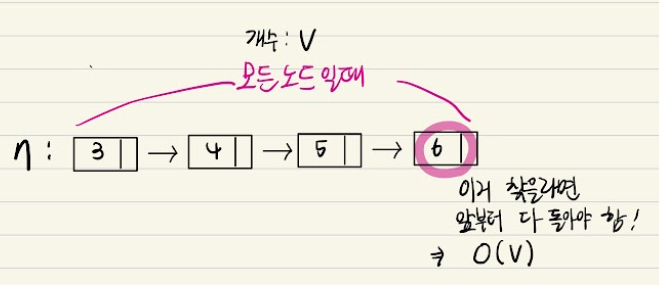 개수 : V
모든 노드일때
η : 3 → 4 → 5 → 6
이거 찾을라면
앞부터 다 돌아야 함!
⇒ O(V)